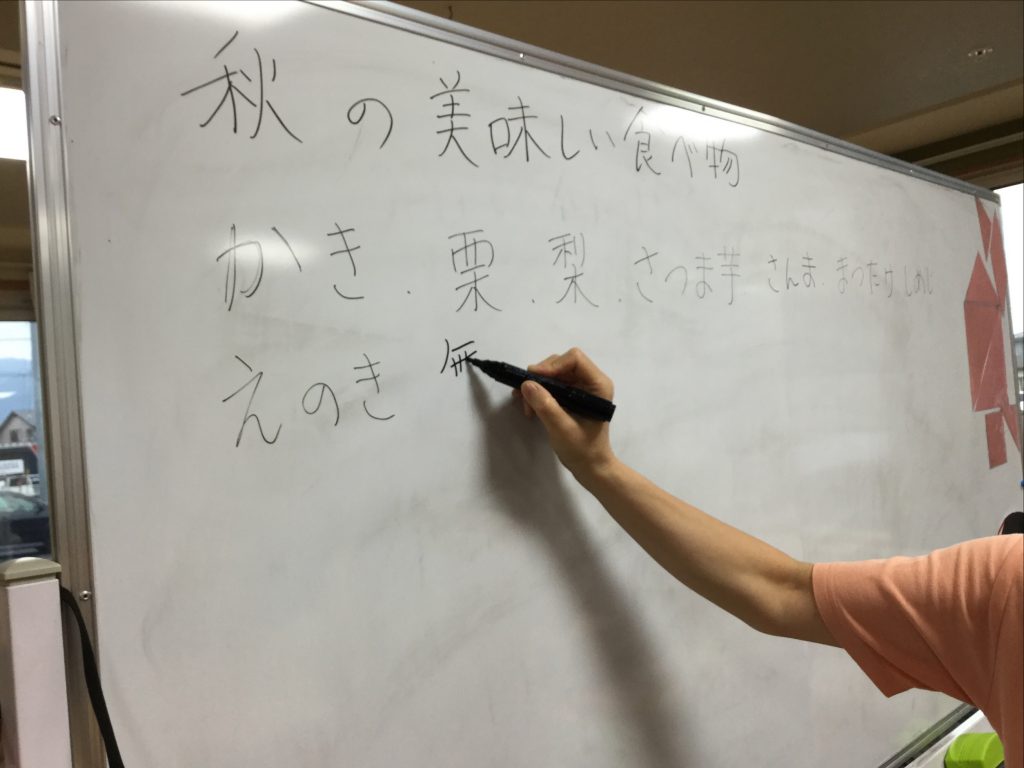 秋の美味しい食べ物
かき.栗.梨.さつま芋.さんま.まつたけ.しめじ
えのき 無